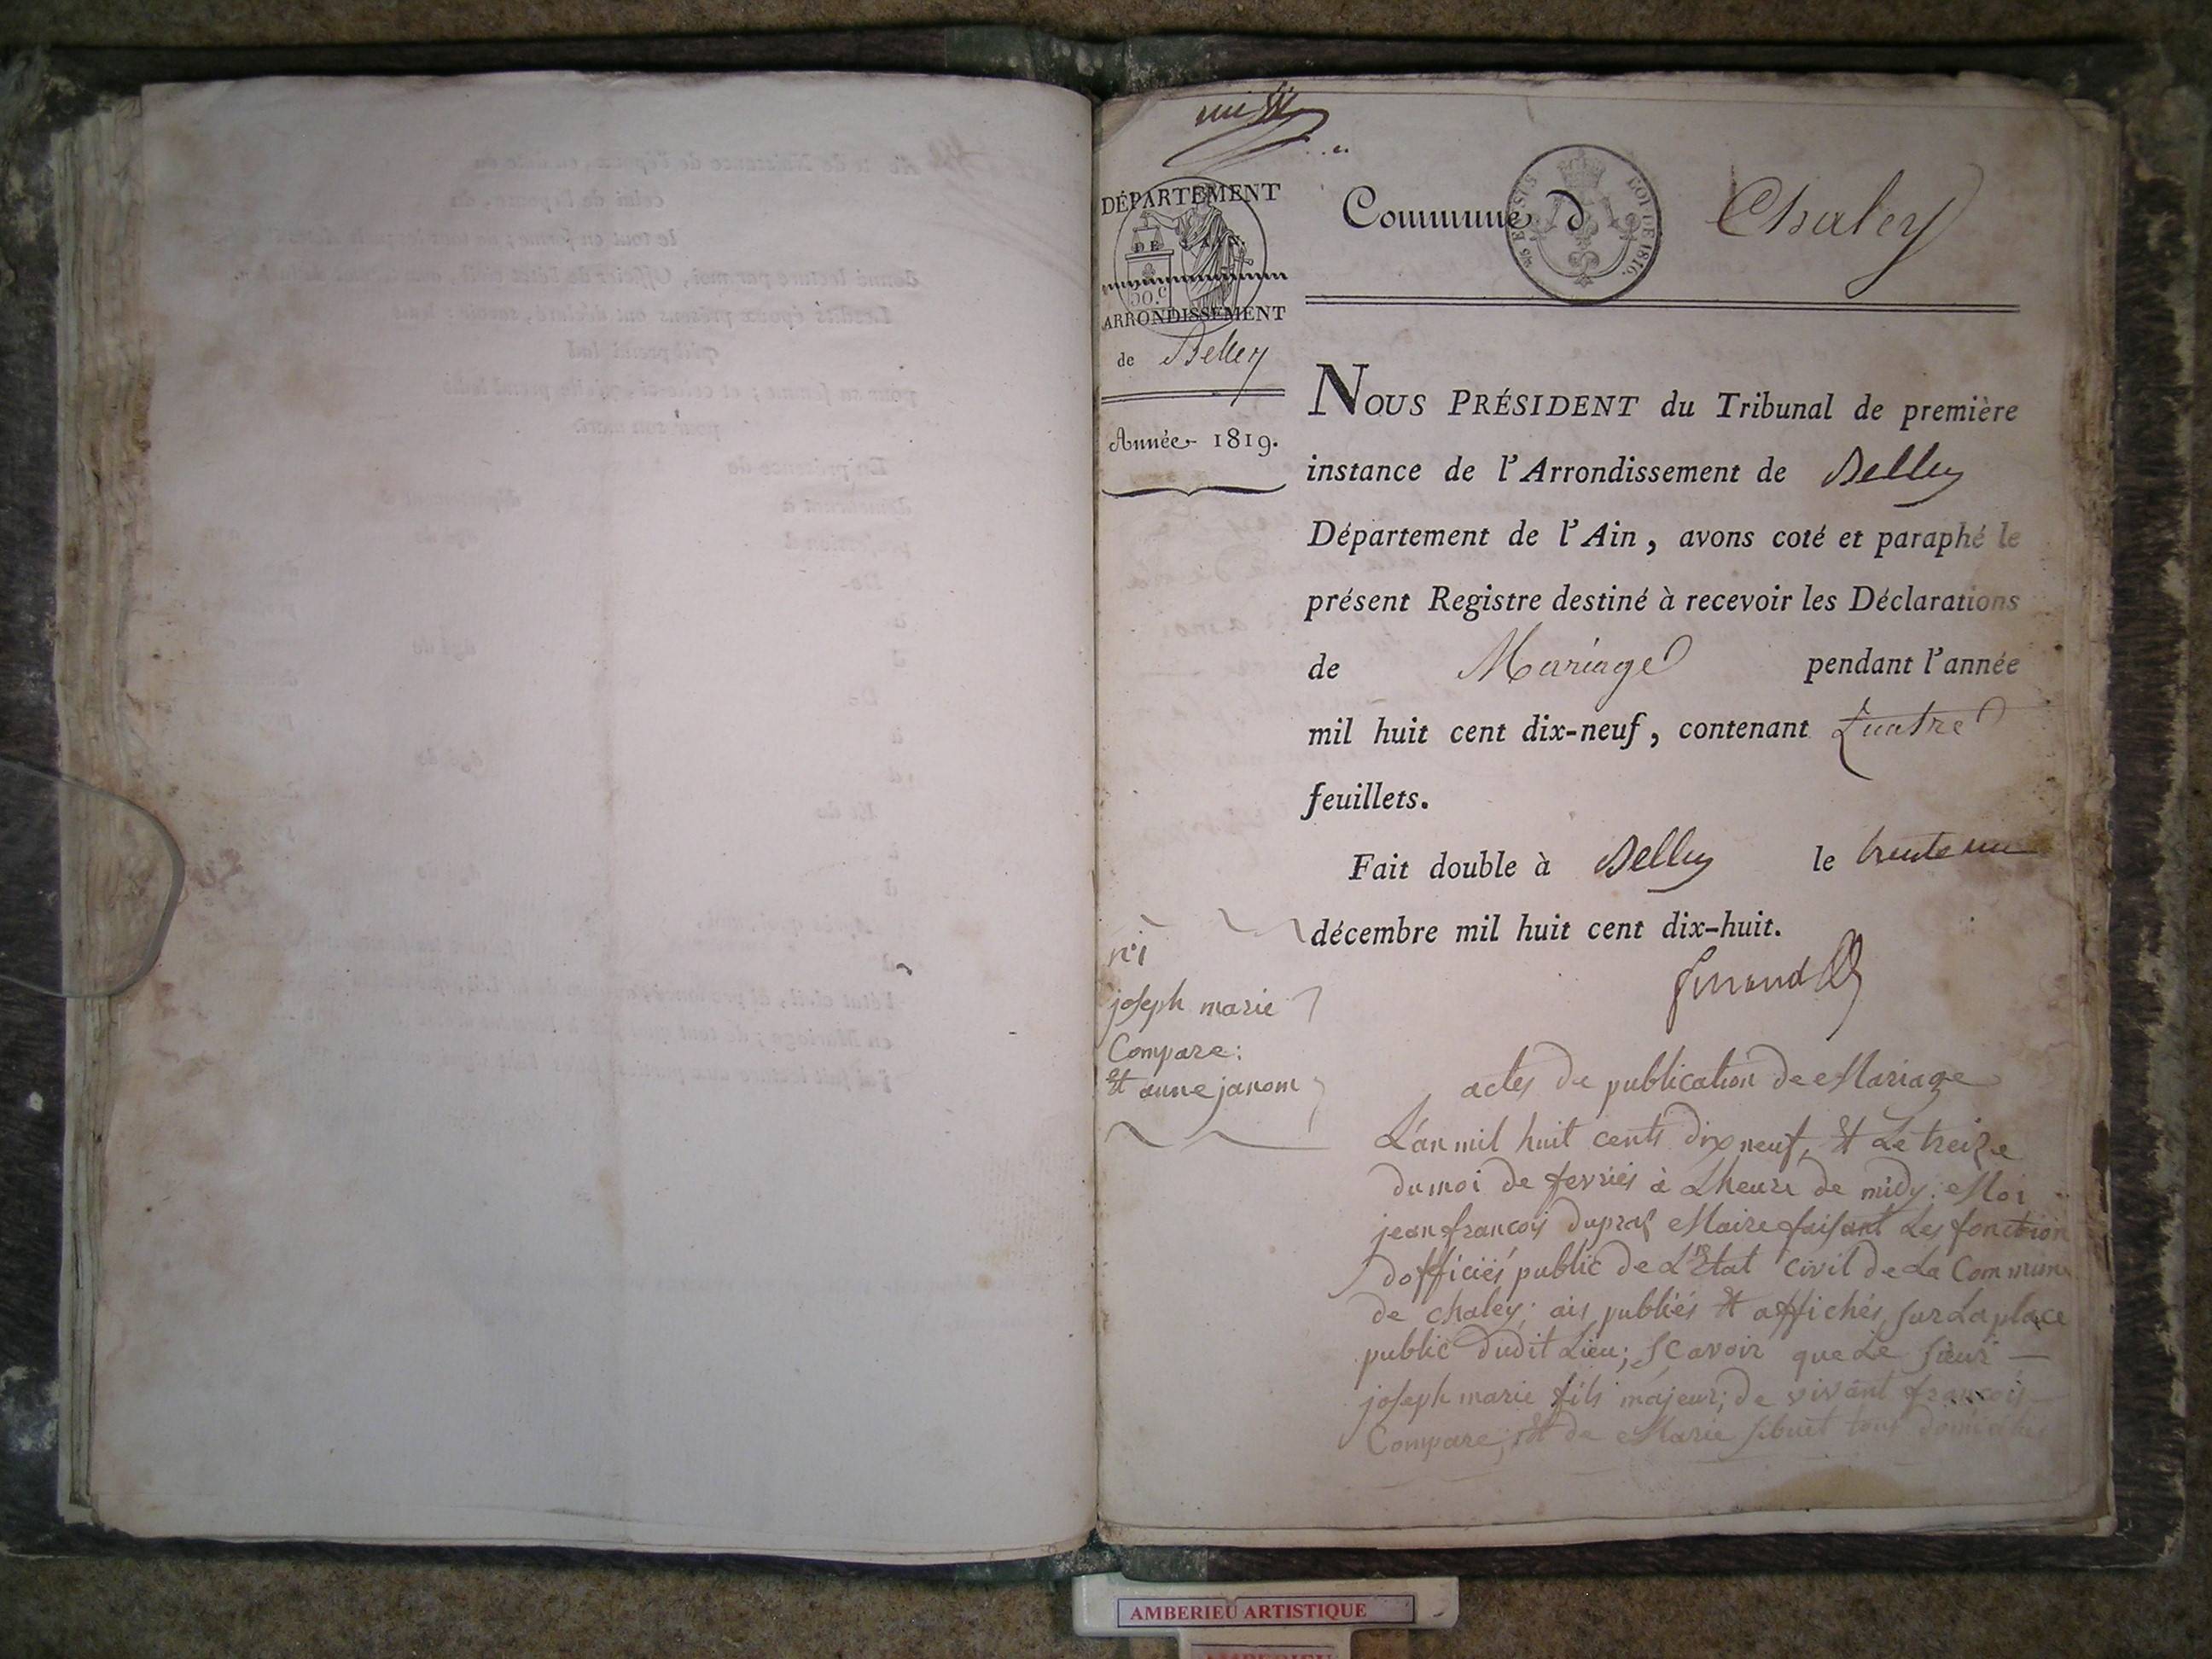 DÉPARTEMENT
DE L'AIN.
50.c
ARRONDISSEMENT
de Belley
Année 1819.
Commune d Chaley
LOI DE 1816.
NOUS PRÉSIDENT du Tribunal de première
instance de l'Arrondissement de Belley
Département de l'Ain, avons coté et paraphé le
présent Registre destiné à recevoir les Déclarations
de Mariage pendant l'année
mil huit cent dix-neuf, contenant Quatre
feuillets.
Fait double à Belley le trente un
décembre mil huit cent dix-huit.
n°1
joseph marie
Compare:
Et anne janom
actes de publication de Mariage
L'an mil huit cents dix neuf, Et Le treize
du moi de fevriés à Lheure de midy; Moi
jean françois dupraz Maire faisant Les fonction
dofficiés public de L'Etat civil de La Commune
de chaley; ais publiés Et affichés, sur La place
public dudit Lieu; scavoir que Le sieur —
joseph marie fils majeur; de vivant francois —
Compare; Et de Marie sibuet tous domiciliés
AMBERIEU ARTISTIQUE
AMBERIEU